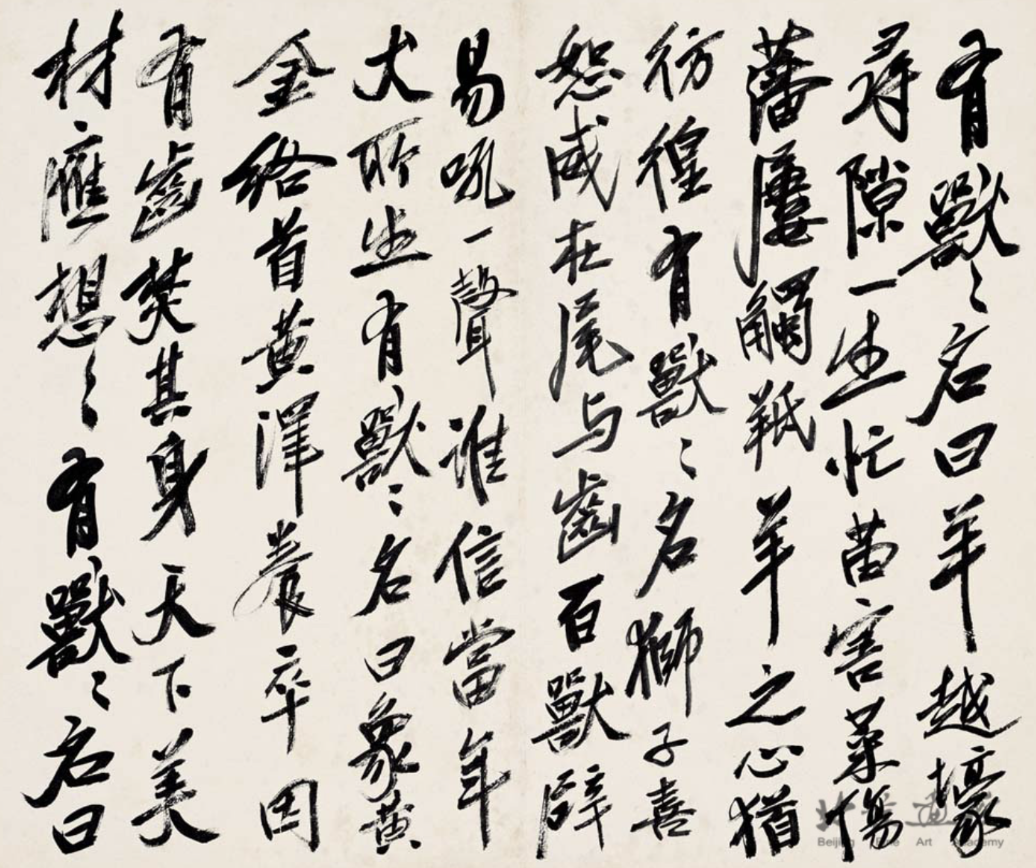 有獸々名曰羊越壕
尋隙一生忙苗害菜傷
藩屢觸羝羊之心猶
彷徨有獸々名獅子喜
怒威在尾与齒百獸辟
易吼一聲誰信當年
犬所坐有獸々名曰象黄
金絡首黄澤養卒因
有齒焚其身天下美
材應想々有獸々名曰
Beijing Fine Art Academy